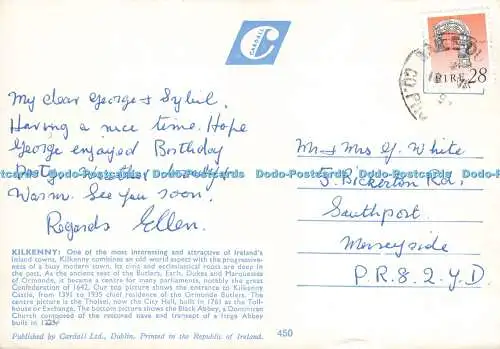 CARDALL
ÉIRE 28
My dear George & Sybil.
Having a nice time. Hope
George enjoyed Birthday
Party. Weather lovely &
Warm. See you soon.
Regards Ellen.
Mr and Mrs G. White
5. Bickerton Rd,
Southport.
Merseyside
P.R.8.2.Y.D.
KILKENNY: One of the most interesting and attractive of Ireland's
inland towns, Kilkenny combines an old world aspect with the progressive-
ness of a busy modern town. Its civic and ecclesiastical roots are deep in
the past. As the ancient seat of the Butlers, Earls, Dukes and Marquesses
of Ormonde, it became a centre for many parliaments, notably the great
Confederation of 1642. Our top picture shows the entrance to Kilkenny
Castle, from 1391 to 1935 chief residence of the Ormonde Butlers. The
centre picture is the Tholsel, now the City Hall, built in 1761 as the Toll-
house or Exchange. The bottom picture shows the Black Abbey, a Dominican
Church composed of the restored nave and transept of a large Abbey
built in 1225.
Published by Cardall Ltd., Dublin. Printed in the Republic of Ireland.
450
Dodo-Postcards Dodo-Postcards Dodo-Postcards Dodo-Postcards Dodo-Postcards